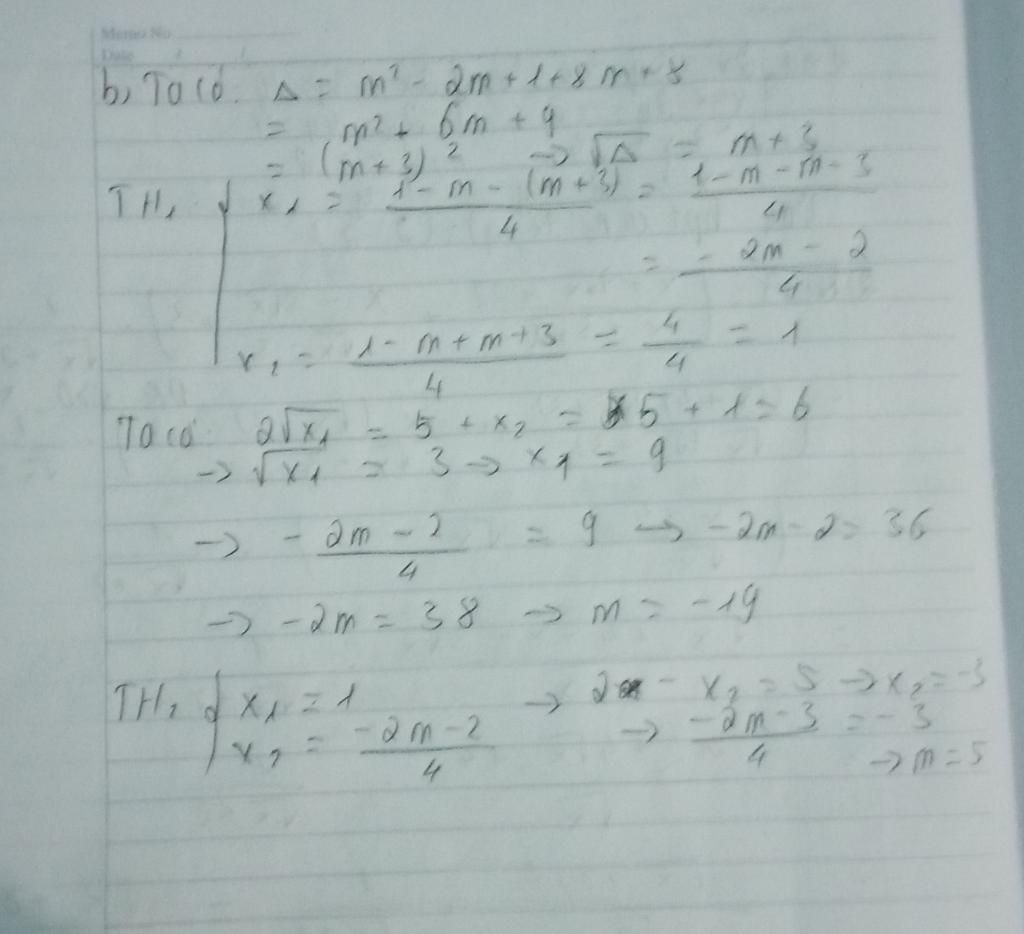 Memo No
Date / /
b, Ta có: Δ = m² - 2m + 1 + 8m + 8
= m² + 6m + 9
= (m+3)² → √Δ = m + 3
TH₁ { x₁ = (1 - m - (m+3))/4 = (1 - m - m - 3)/4
= (-2m - 2)/4
x₂ = (1 - m + m + 3)/4 = 4/4 = 1
Ta có: 2√x₁ = 5 + x₂ = 5 + 1 = 6
→ √x₁ = 3 → x₁ = 9
→ (-2m - 2)/4 = 9 → -2m - 2 = 36
→ -2m = 38 → m = -19
TH₂ { x₁ = 1 → 2 - x₂ = 5 → x₂ = -3
x₂ = (-2m - 2)/4 → (-2m - 3)/4 = -3
→ m = 5